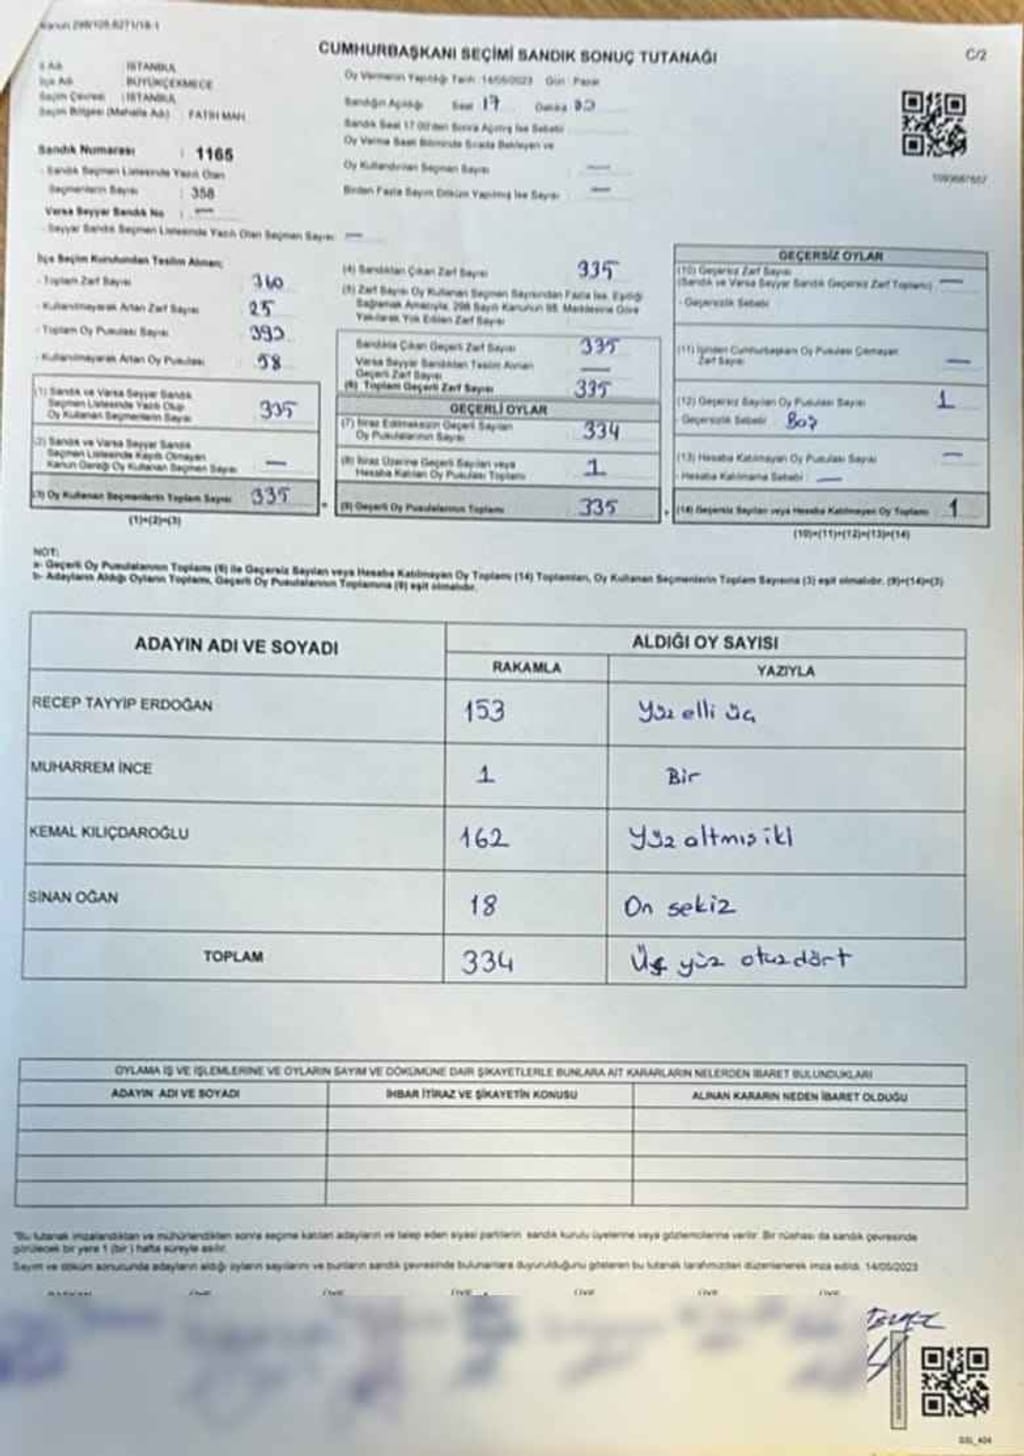 Kanun 298/105.6271/18-1
CUMHURBAŞKANI SEÇİMİ SANDIK SONUÇ TUTANAĞI
C/2
İl Adı : İSTANBUL
İlçe Adı : BÜYÜKÇEKMECE
Seçim Çevresi : İSTANBUL
Seçim Bölgesi (Mahalle Adı) : FATİH MAH.
Sandık Numarası : 1165
Sandık Seçmen Listesinde Yazılı Olan
Seçmenlerin Sayısı : 358
Varsa Seyyar Sandık No : —
Seyyar Sandık Seçmen Listesinde Yazılı Olan Seçmen Sayısı : —
Oy Vermenin Yapıldığı Tarih : 14/05/2023 Gün : Pazar
Sandığın Açıldığı Saat 17 Dakika
Sandık Saat 17:00'den Sonra Açılmış İse Sebebi
Oy Verme Saati Bitiminde Sırada Bekleyen ve
Oy Kullandırılan Seçmen Sayısı —
Birden Fazla Sayım Döküm Yapılmış İse Sayısı —
İlçe Seçim Kurulundan Teslim Alınan;
- Toplam Zarf Sayısı 360
- Kullanılmayarak Artan Zarf Sayısı 25
- Toplam Oy Pusulası Sayısı 393
- Kullanılmayarak Artan Oy Pusulası 58
(1) Sandık ve Varsa Seyyar Sandık
Seçmen Listesinde Yazılı Olup
Oy Kullanan Seçmenlerin Sayısı 335
(2) Sandık ve Varsa Seyyar Sandık
Seçmen Listesinde Kayıtlı Olmayan
Kanun Gereği Oy Kullanan Seçmen Sayısı —
(3) Oy Kullanan Seçmenlerin Toplam Sayısı 335
(1)+(2)=(3)
(4) Sandıktan Çıkan Zarf Sayısı 335
(5) Zarf Sayısı Oy Kullanan Seçmen Sayısından Fazla İse, Eşitliği
Sağlamak Amacıyla, 298 Sayılı Kanunun 98. Maddesine Göre
Yakılarak Yok Edilen Zarf Sayısı
Sandıkta Çıkan Geçerli Zarf Sayısı 335
Varsa Seyyar Sandıktan Teslim Alınan
Geçerli Zarf Sayısı —
(6) Toplam Geçerli Zarf Sayısı 335
GEÇERLİ OYLAR
(7) İtiraz Edilmeksizin Geçerli Sayılan
Oy Pusulalarının Sayısı 334
(8) İtiraz Üzerine Geçerli Sayılan veya
Hesaba Katılan Oy Pusulası Toplamı 1
(9) Geçerli Oy Pusulalarının Toplamı 335
GEÇERSİZ OYLAR
(10) Geçersiz Zarf Sayısı
(Sandık ve Varsa Seyyar Sandık Geçersiz Zarf Toplamı) —
- Geçersizlik Sebebi
(11) İçinden Cumhurbaşkanı Oy Pusulası Çıkmayan
Zarf Sayısı —
(12) Geçersiz Sayılan Oy Pusulası Sayısı 1
- Geçersizlik Sebebi Boş
(13) Hesaba Katılmayan Oy Pusulası Sayısı —
- Hesaba Katılmama Sebebi : —
(14) Geçersiz Sayılan veya Hesaba Katılmayan Oy Toplamı 1
(10)+(11)+(12)+(13)=(14)
NOT:
a- Geçerli Oy Pusulalarının Toplamı (9) ile Geçersiz Sayılan veya Hesaba Katılmayan Oy Toplamı (14) Toplamları, Oy Kullanan Seçmenlerin Toplam Sayısına (3) eşit olmalıdır. (9)+(14)=(3)
b- Adayların Aldığı Oyların Toplamı, Geçerli Oy Pusulalarının Toplamına (9) eşit olmalıdır.
ADAYIN ADI VE SOYADI
ALDIĞI OY SAYISI
RAKAMLA YAZIYLA
RECEP TAYYİP ERDOĞAN 153 Yüz elli üç
MUHARREM İNCE 1 Bir
KEMAL KILIÇDAROĞLU 162 Yüz altmış iki
SİNAN OĞAN 18 On sekiz
TOPLAM 334 Üç yüz otuzdört
OYLAMA İŞ VE İŞLEMLERİNE VE OYLARIN SAYIM VE DÖKÜMÜNE DAİR ŞİKAYETLERLE BUNLARA AİT KARARLARIN NELERDEN İBARET BULUNDUKLARI
ADAYIN ADI VE SOYADI
İHBAR İTİRAZ VE ŞİKAYETİN KONUSU
ALINAN KARARIN NEDEN İBARET OLDUĞU
*Bu tutanak imzalandıktan ve mühürlendikten sonra seçime katılan adayların ve talep eden siyasi partilerin sandık kurulu üyelerine veya gözlemcilerine verilir. Bir nüshası da sandık çevresinde
görülecek bir yere 1 (bir) hafta süreyle asılır.
Sayım ve döküm sonucunda adayların aldığı oyların sayılarını ve bunların sandık çevresinde bulunanlara duyurulduğunu gösteren bu tutanak tarafımızdan düzenlenerek imza edildi. 14/05/2023